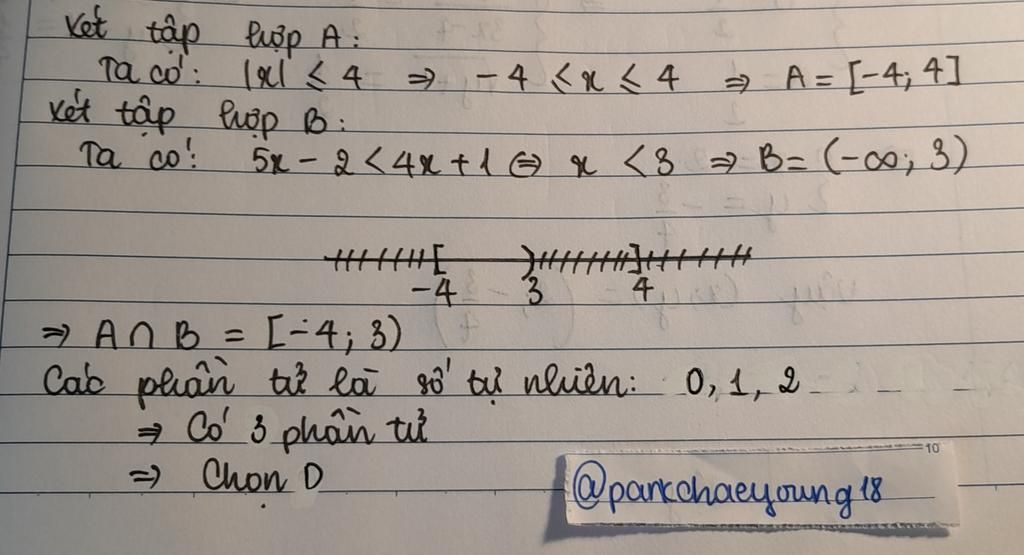 Xét tập hợp A:
Ta có: |x| ≤ 4 ⇒ -4 ≤ x ≤ 4 ⇒ A = [-4; 4]
Xét tập hợp B:
Ta có: 5x - 2 < 4x + 1 ⇔ x < 3 ⇒ B = (-∞; 3)
-4 3 4
⇒ A ∩ B = [-4; 3)
Các phần tử là số tự nhiên: 0, 1, 2
⇒ Có 3 phần tử
⇒ Chọn D
10
@parkchaeyoung18